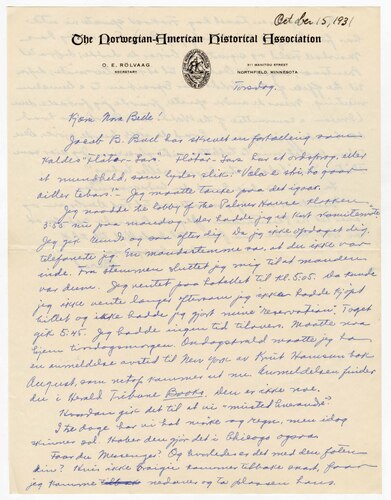 October 15, 1931
The Norwegian-American Historical Association
O. E. RÖLVAAG
SECRETARY
311 MANITOU STREET
NORTHFIELD, MINNESOTA
Torsdag.
Kjære Nora Bede!
Jacob B. Bull har skrevet en fortælling som
kaldes "Flåtår-Lars" Flåtår-Lars har et ordsprog, eller
et mundheld, som lyder slik:
sitter tebars!" Jeg maatte tænke paa det igaar.
Jeg naadde te lobby of the Palmer House klokken
3:55 nu paa mandag. der hadde jeg et kort
Jeg gik rundt og saa efter dig. Da jeg ikke opdaget dig,
telefonerte jeg. En mandsstemme sa, at du ikke var
inde. Fra stemmen sluttet jeg mig til at manden
var din. Jeg ventet paa hotellet til Kl. 5.05. Da kunde
jeg ikke vente længer eftersom jeg ikke hadde kjøpt
billet og ikke hadde jeg gjort mine "reservations". Toget
gik 5.45. Jeg hadde ingen tid tilovers. Maatte naa
hjem tirsdagsmorgen. Onsdagskvæld maatte jeg ha
en anmeldelse avsted til New York av Knut Hamsun
August, som netop kommer ut nu. Anmeldelsen finder
du i Herald Tribune Books. Den er ikke noe.
Hvordan gik det til at vi "missed hverandre"?
I tre dage har vi hat niske og regn, men idag
skinner sol. Haber den gjør det i Chicago ogsaa.
Faar du Messenger? Og hvorledes er det med den foten
din? Hvis ikke Craigie kommer tilbake snart, faar
jeg komme nedover og ta plassen hans.